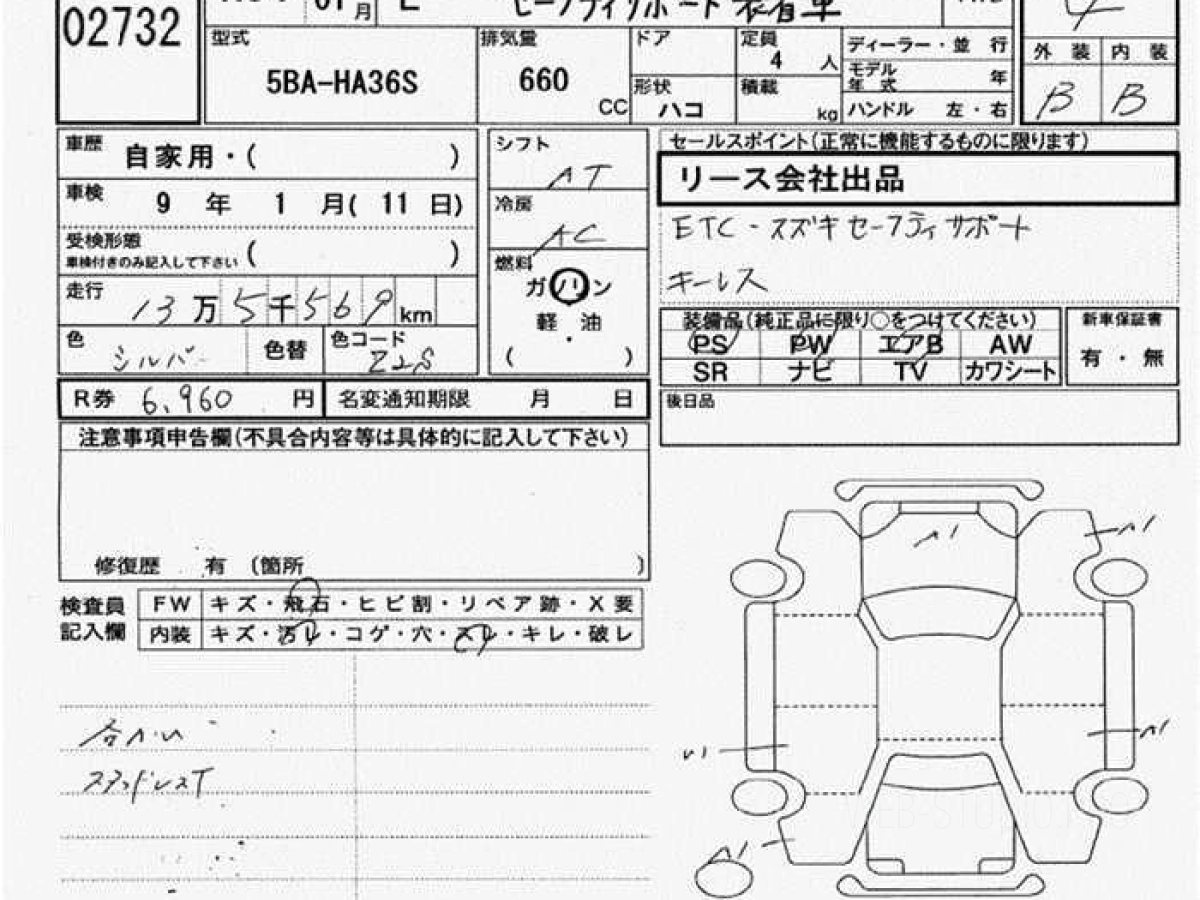 02732
01月 E セーフティサポート 装着車
4
型式 排気量 ドア 定員 4 人 ディーラー・並 行 外 装 内 装
5BA-HA36S 660 CC 形状 ハコ 積載 kg モデル年式 年 B B
ハンドル 左・右
車歴 自家用・( ) シフト AT セールスポイント(正常に機能するものに限ります)
リース会社出品
車検 9 年 1 月( 11 日) 冷房 AC
ETC・スズキセーフティサポート
受検形態 ( )
車検付きのみ記入して下さい
燃料 ガソリン
キーレス
走行 13万5千569km 軽・油
( )
装備品(純正品に限り○をつけてください) 新車保証書
色 シルバー 色替 色コード Z2S
PS PW エアB AW 有・無
SR ナビ TV カワシート
R券 6,960 円 名変通知期限 月 日 後日品
注意事項申告欄(不具合内容等は具体的に記入して下さい)
修復歴 有 (箇所 )
検査員 FW キズ・飛石・ヒビ割・リペア跡・X要
記入欄 内装 キズ・汚レ・コゲ・穴・スレ・キレ・破レ
スタッドレスT